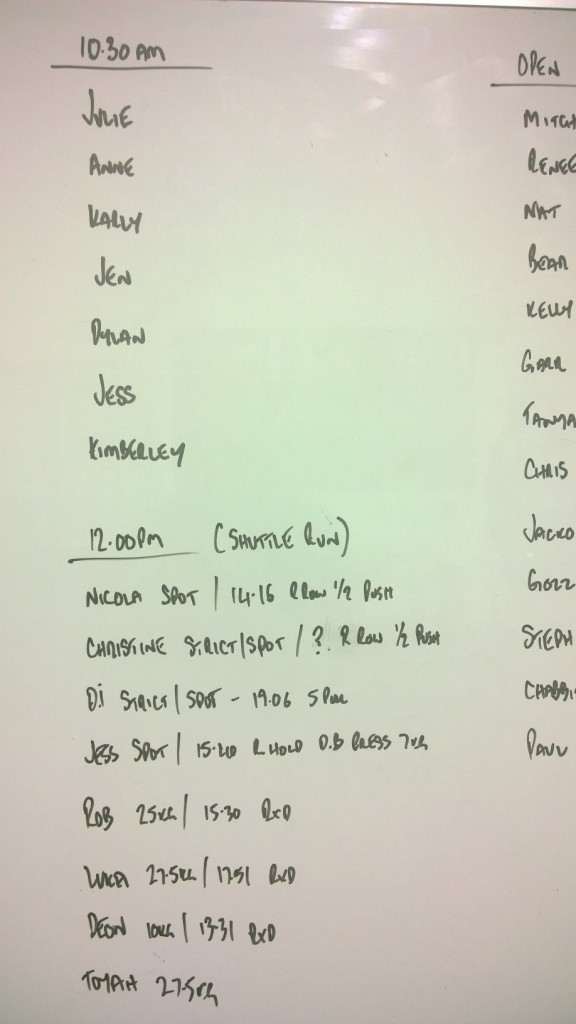 10.30 AM
JULIE
ANNE
KARLY
JEN
DYLAN
JESS
KIMBERLEY
12.00PM (SHUTTLE RUN)
NICOLA SPOT | 14.16 R ROW 1/2 PUSH
CHRISTINE STRICT/SPOT / ? R ROW 1/2 PUSH
DI STRICT | SPOT - 19.06 5
JESS SPOT | 15.40 R HOLD D.B PRESS 7KG
ROB 25KG / 15.30 RXD
LUKA 27.5KG / 17.51 RXD
DEON 10KG | 13.31 RXD
27.5KG
OPEN
MITCH
RENEE
NAT
BEAR
KELLY
GARR
TANYA
CHRIS
JACKO
GOZZ
STEPH
PAUL